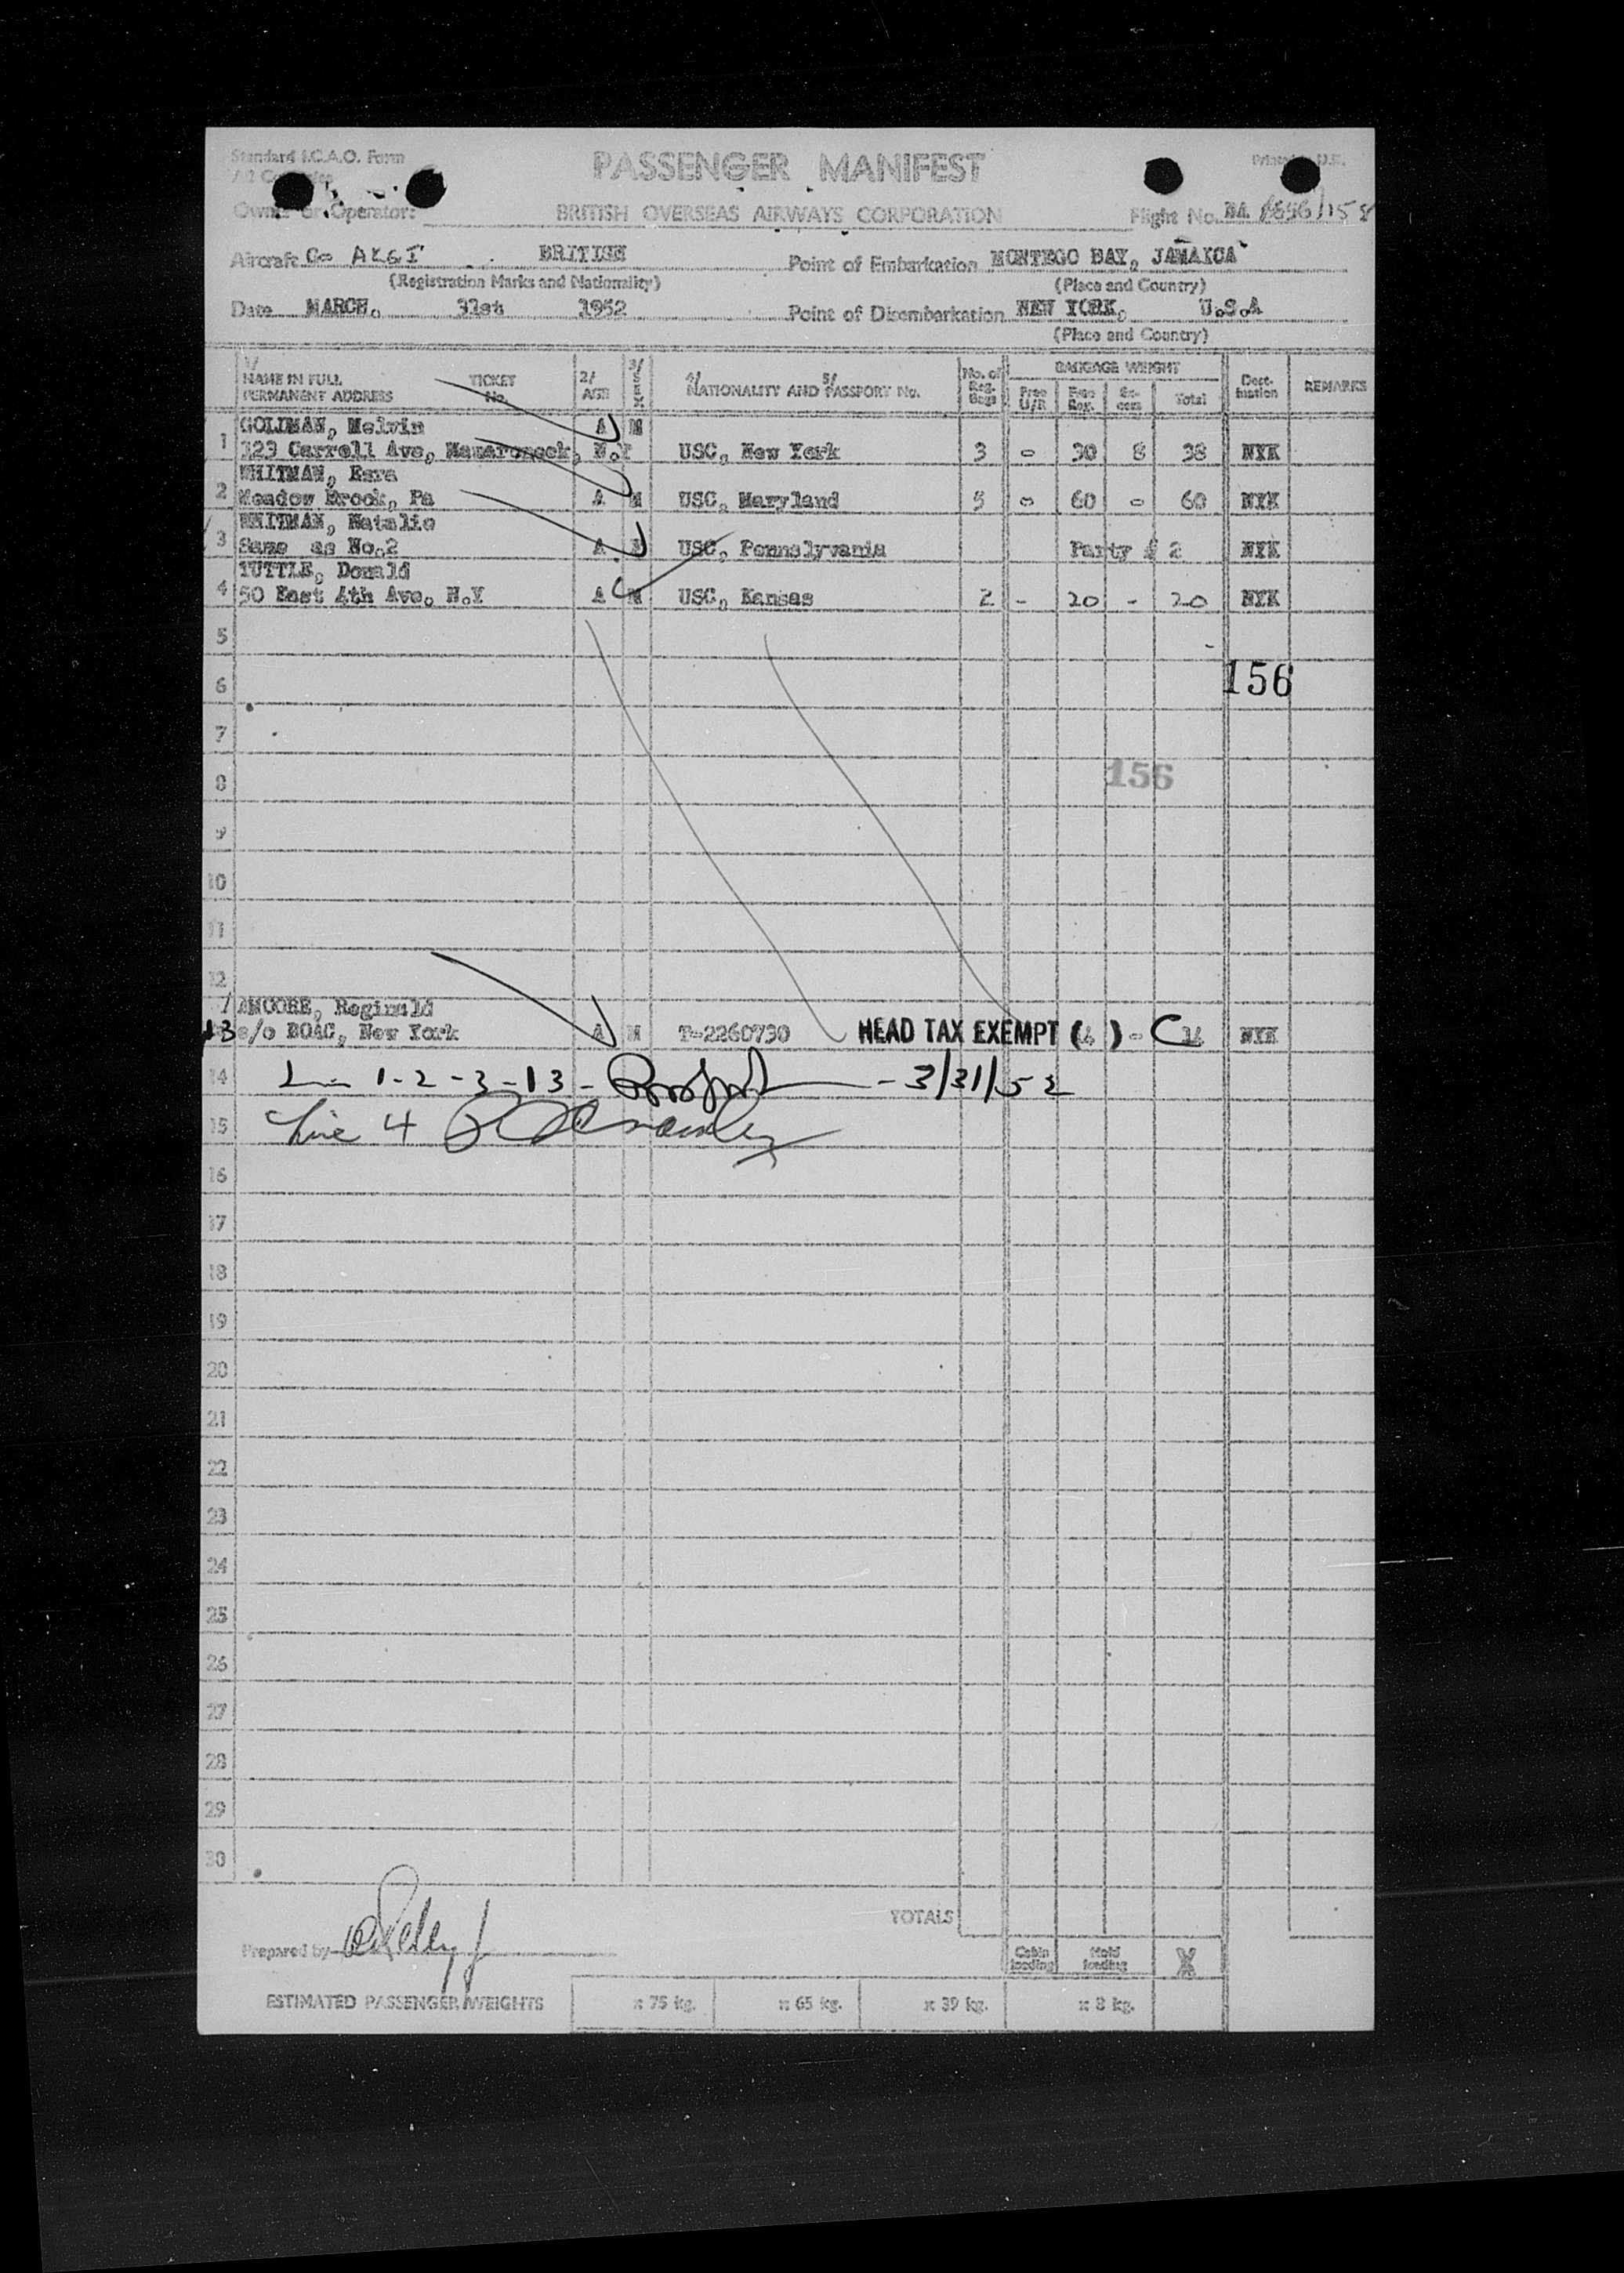 Standard I.C.A.O. Form
PASSENGER MANIFEST
Owner or Operator: BRITISH OVERSEAS AIRWAYS CORPORATION Flight No. BA
Aircraft G- ALGI BRITISH Point of Embarkation MONTEGO BAY, JAMAICA
(Registration Marks and Nationality) (Place and Country)
Date MARCH. 31st 1952 Point of Disembarkation NEW YORK, U.S.A
(Place and Country)
1/ NAME IN FULL PERMANENT ADDRESS TICKET No. 2/ AGE 3/ SEX 4/ NATIONALITY AND 5/ PASSPORT No. No. of Reg. Bags BAGGAGE WEIGHT Free U/R Free Reg. Ex-cess Total Dest-ination REMARKS
GOLDMAN, Melvin A M
1 123 Carroll Ave, Mamaroneck, N.Y USC, New York 3 - 30 8 38 NYK
WHITMAN, Ezra
2 Meadow Brook, Pa A M USC, Maryland 5 - 60 - 60 NYK
WHITMAN, Natalie
3 Same as No.2 A F USC, Pennslyvania Party # 2 NYK
TUTTLE, Donald
4 50 East 4th Ave. N.Y A M USC, Kansas 2 - 20 - 20 NYK
5
6 156
7
8 156
9
10
11
12
AMOORE, Reginald
13 c/o BOAC, New York A M T-2260790 HEAD TAX EXEMPT (4) - C NYK
14 L- 1-2-3-13- - 3/31/52
15 Line 4
16
17
18
19
20
21
22
23
24
25
26
27
28
29
30
TOTALS
Prepared by
Cabin loading Hold loading X
ESTIMATED PASSENGER WEIGHTS x 75 kg. x 65 kg. x 39 kg. x 8 kg.